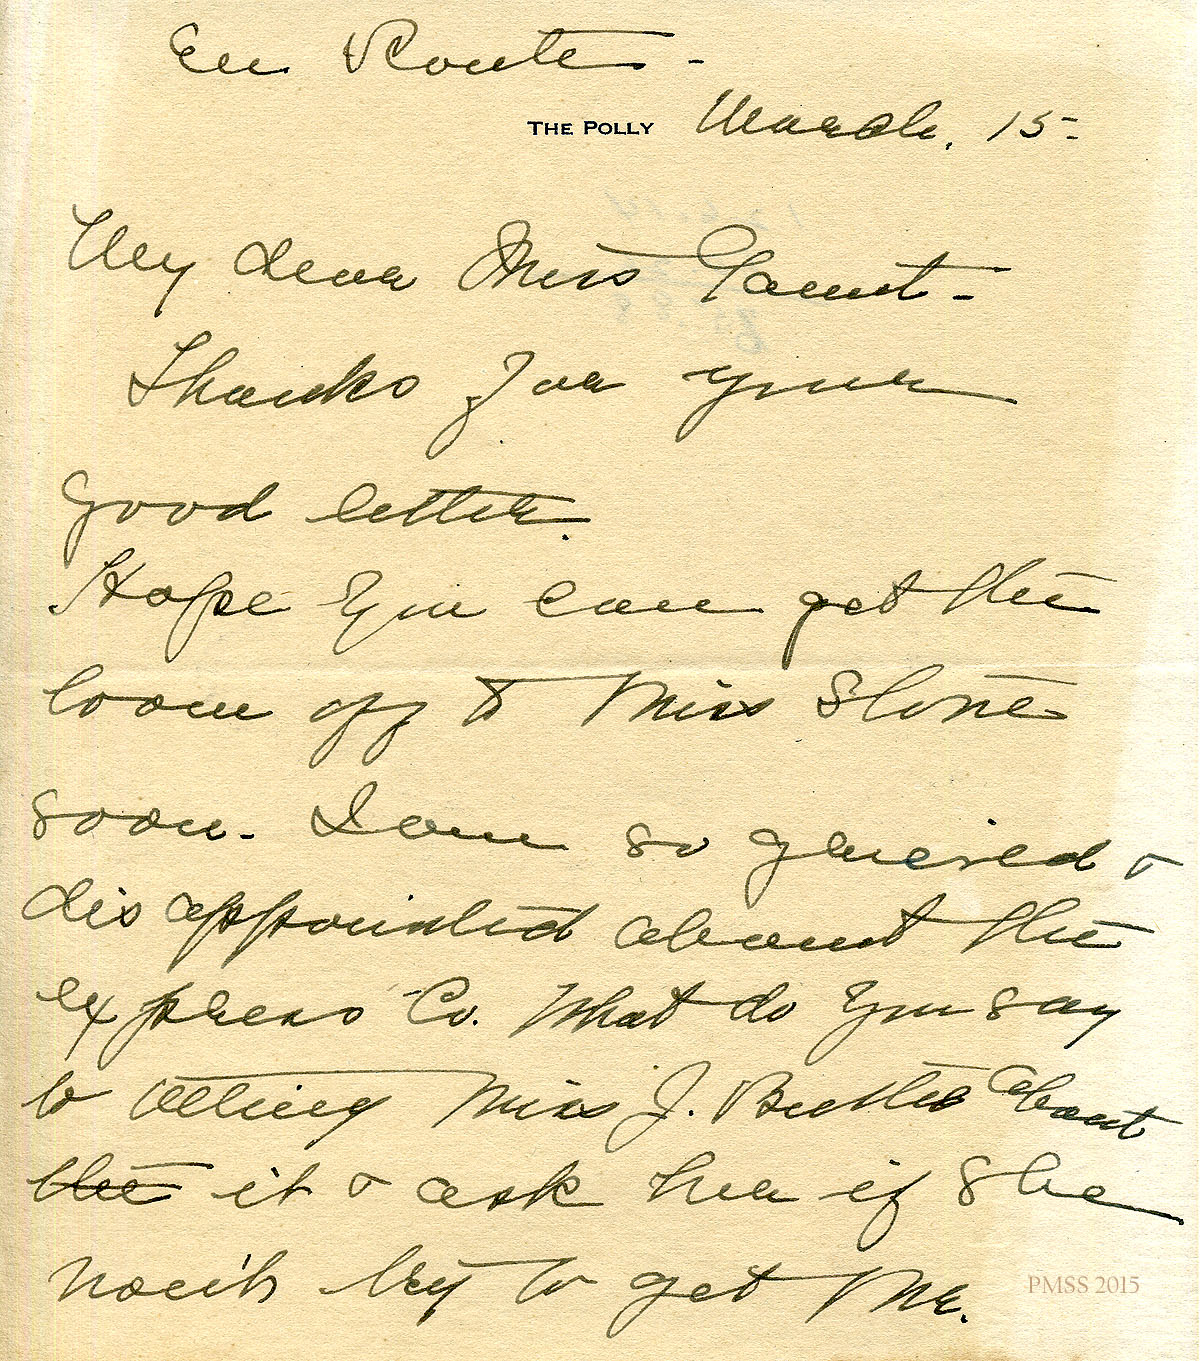 En Route -
THE POLLY March, 15-
My dear Miss Gaunt -
Thanks for your
good letter.
Hope you can get the
loom off to Miss Stone
soon. I am so grieved &
disappointed about the
express Co. What do you say
to telling Miss J. Butler about
the it & ask her if she
won't try to get Mr.
PMSS 2015